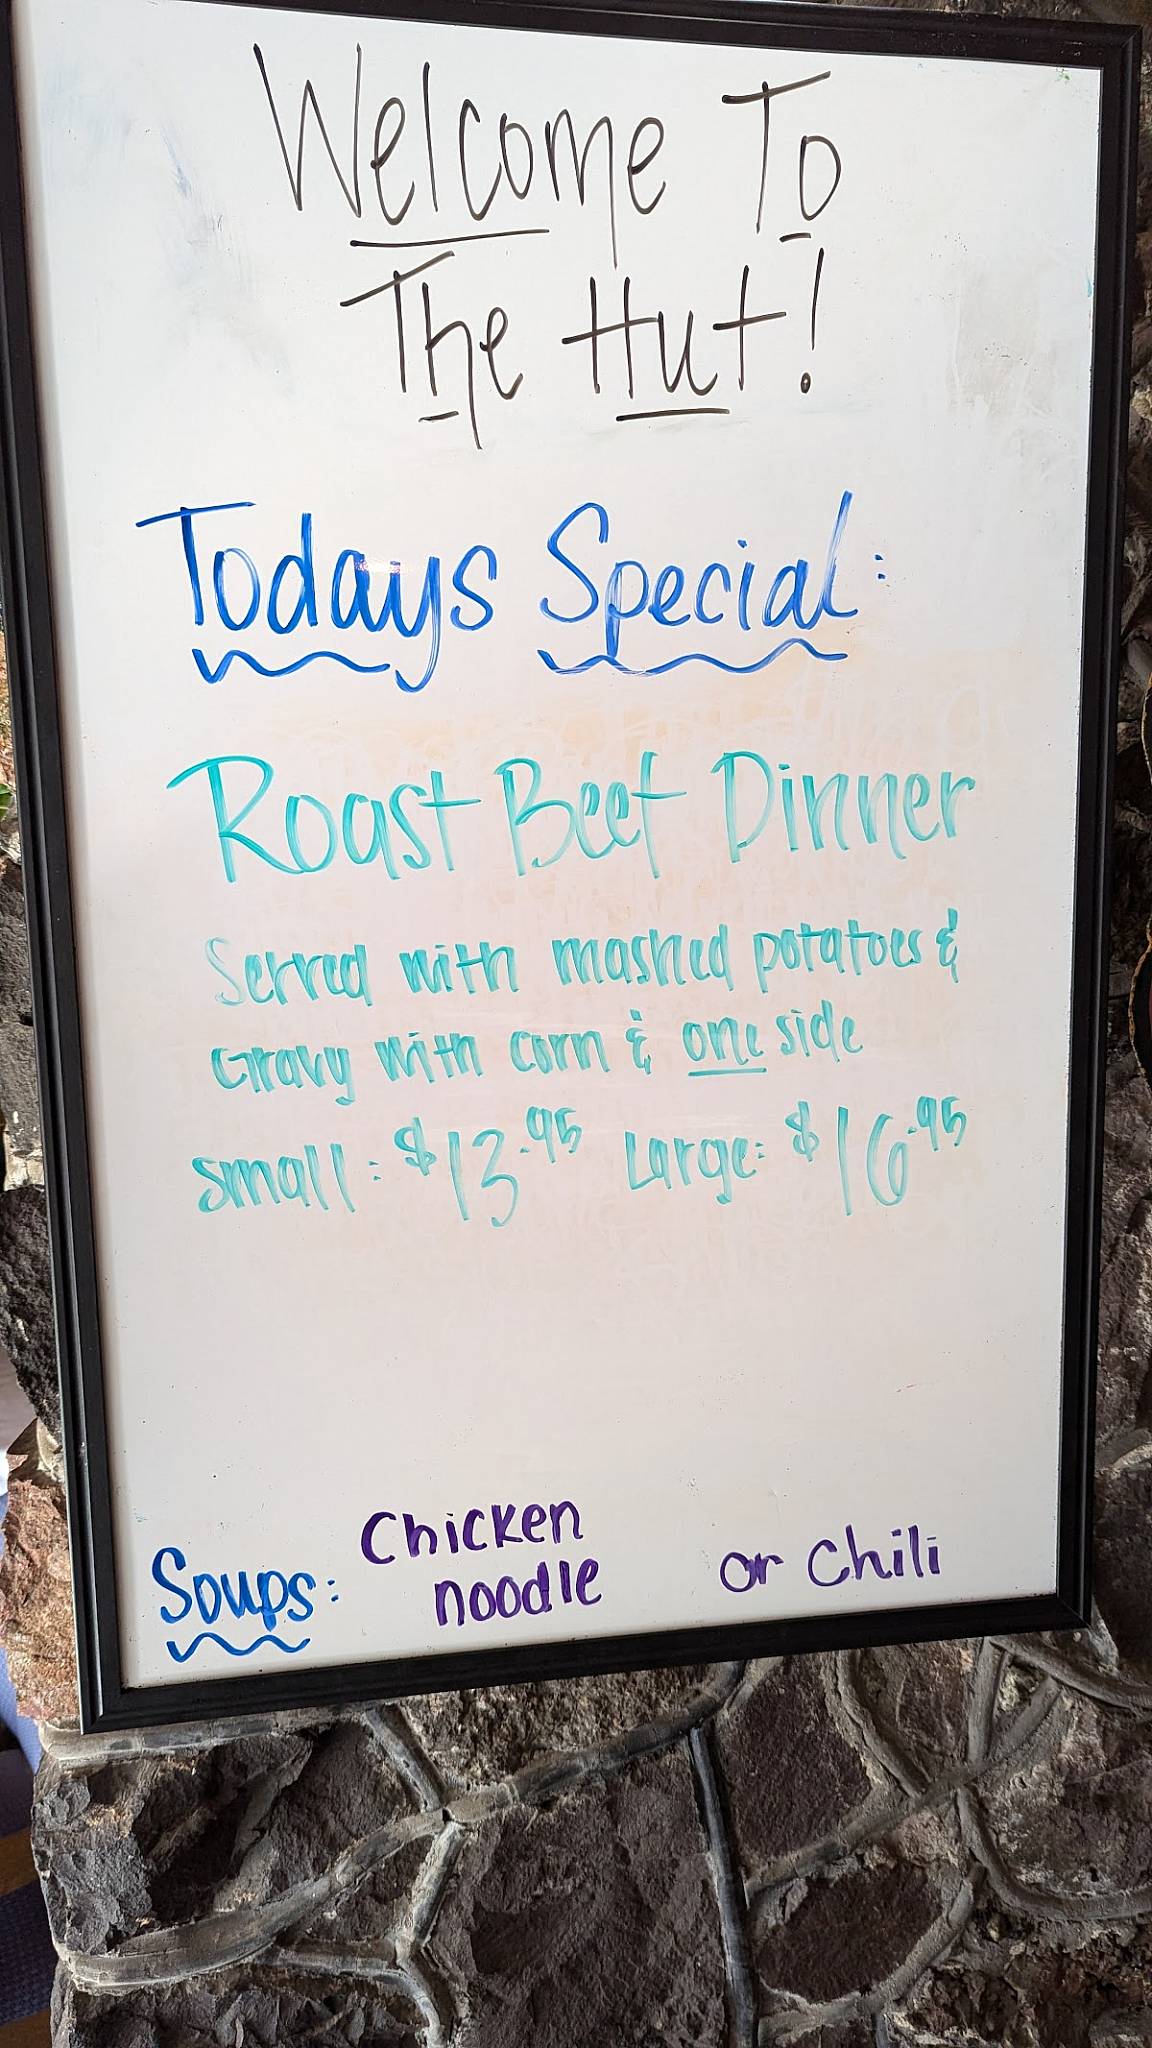 Welcome To
The Hut!
Todays Special:
Roast Beef Dinner
Served with mashed potatoes &
Gravy with corn & one side
Small: $13.95 Large: $16.95
Soups: Chicken noodle or Chili